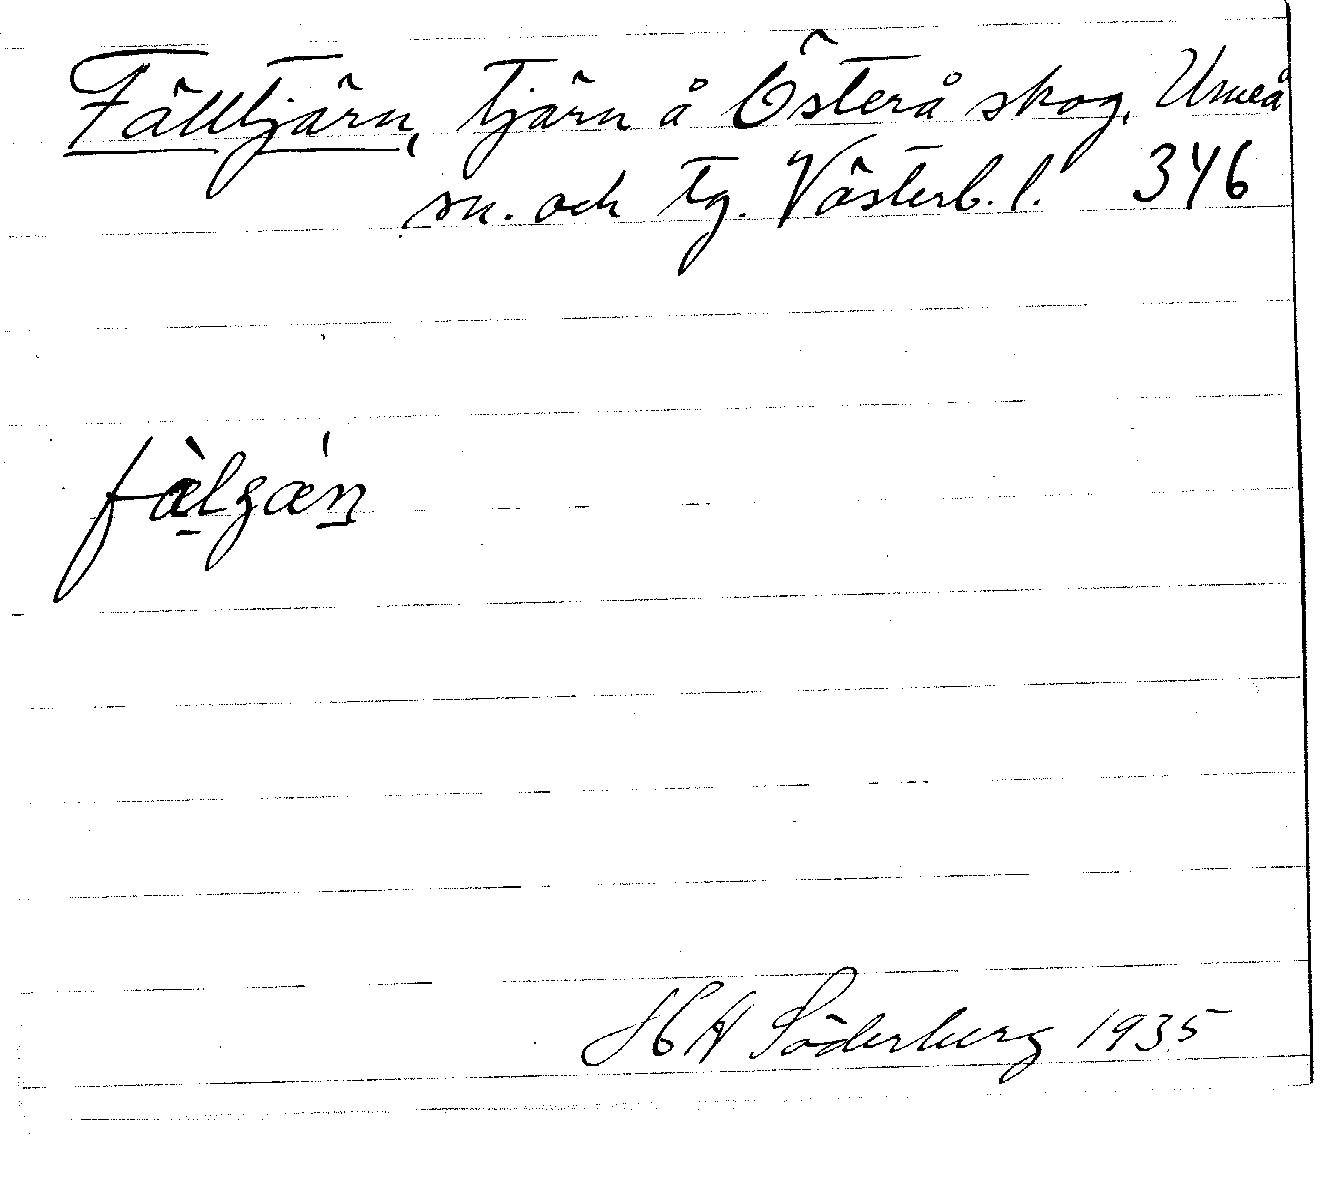 Fälltjärn, tjärn å Österå skog, Umeå
sn. och tg. Västerb. l. 346
fæ̀lʒǽn
H Söderberg 1935